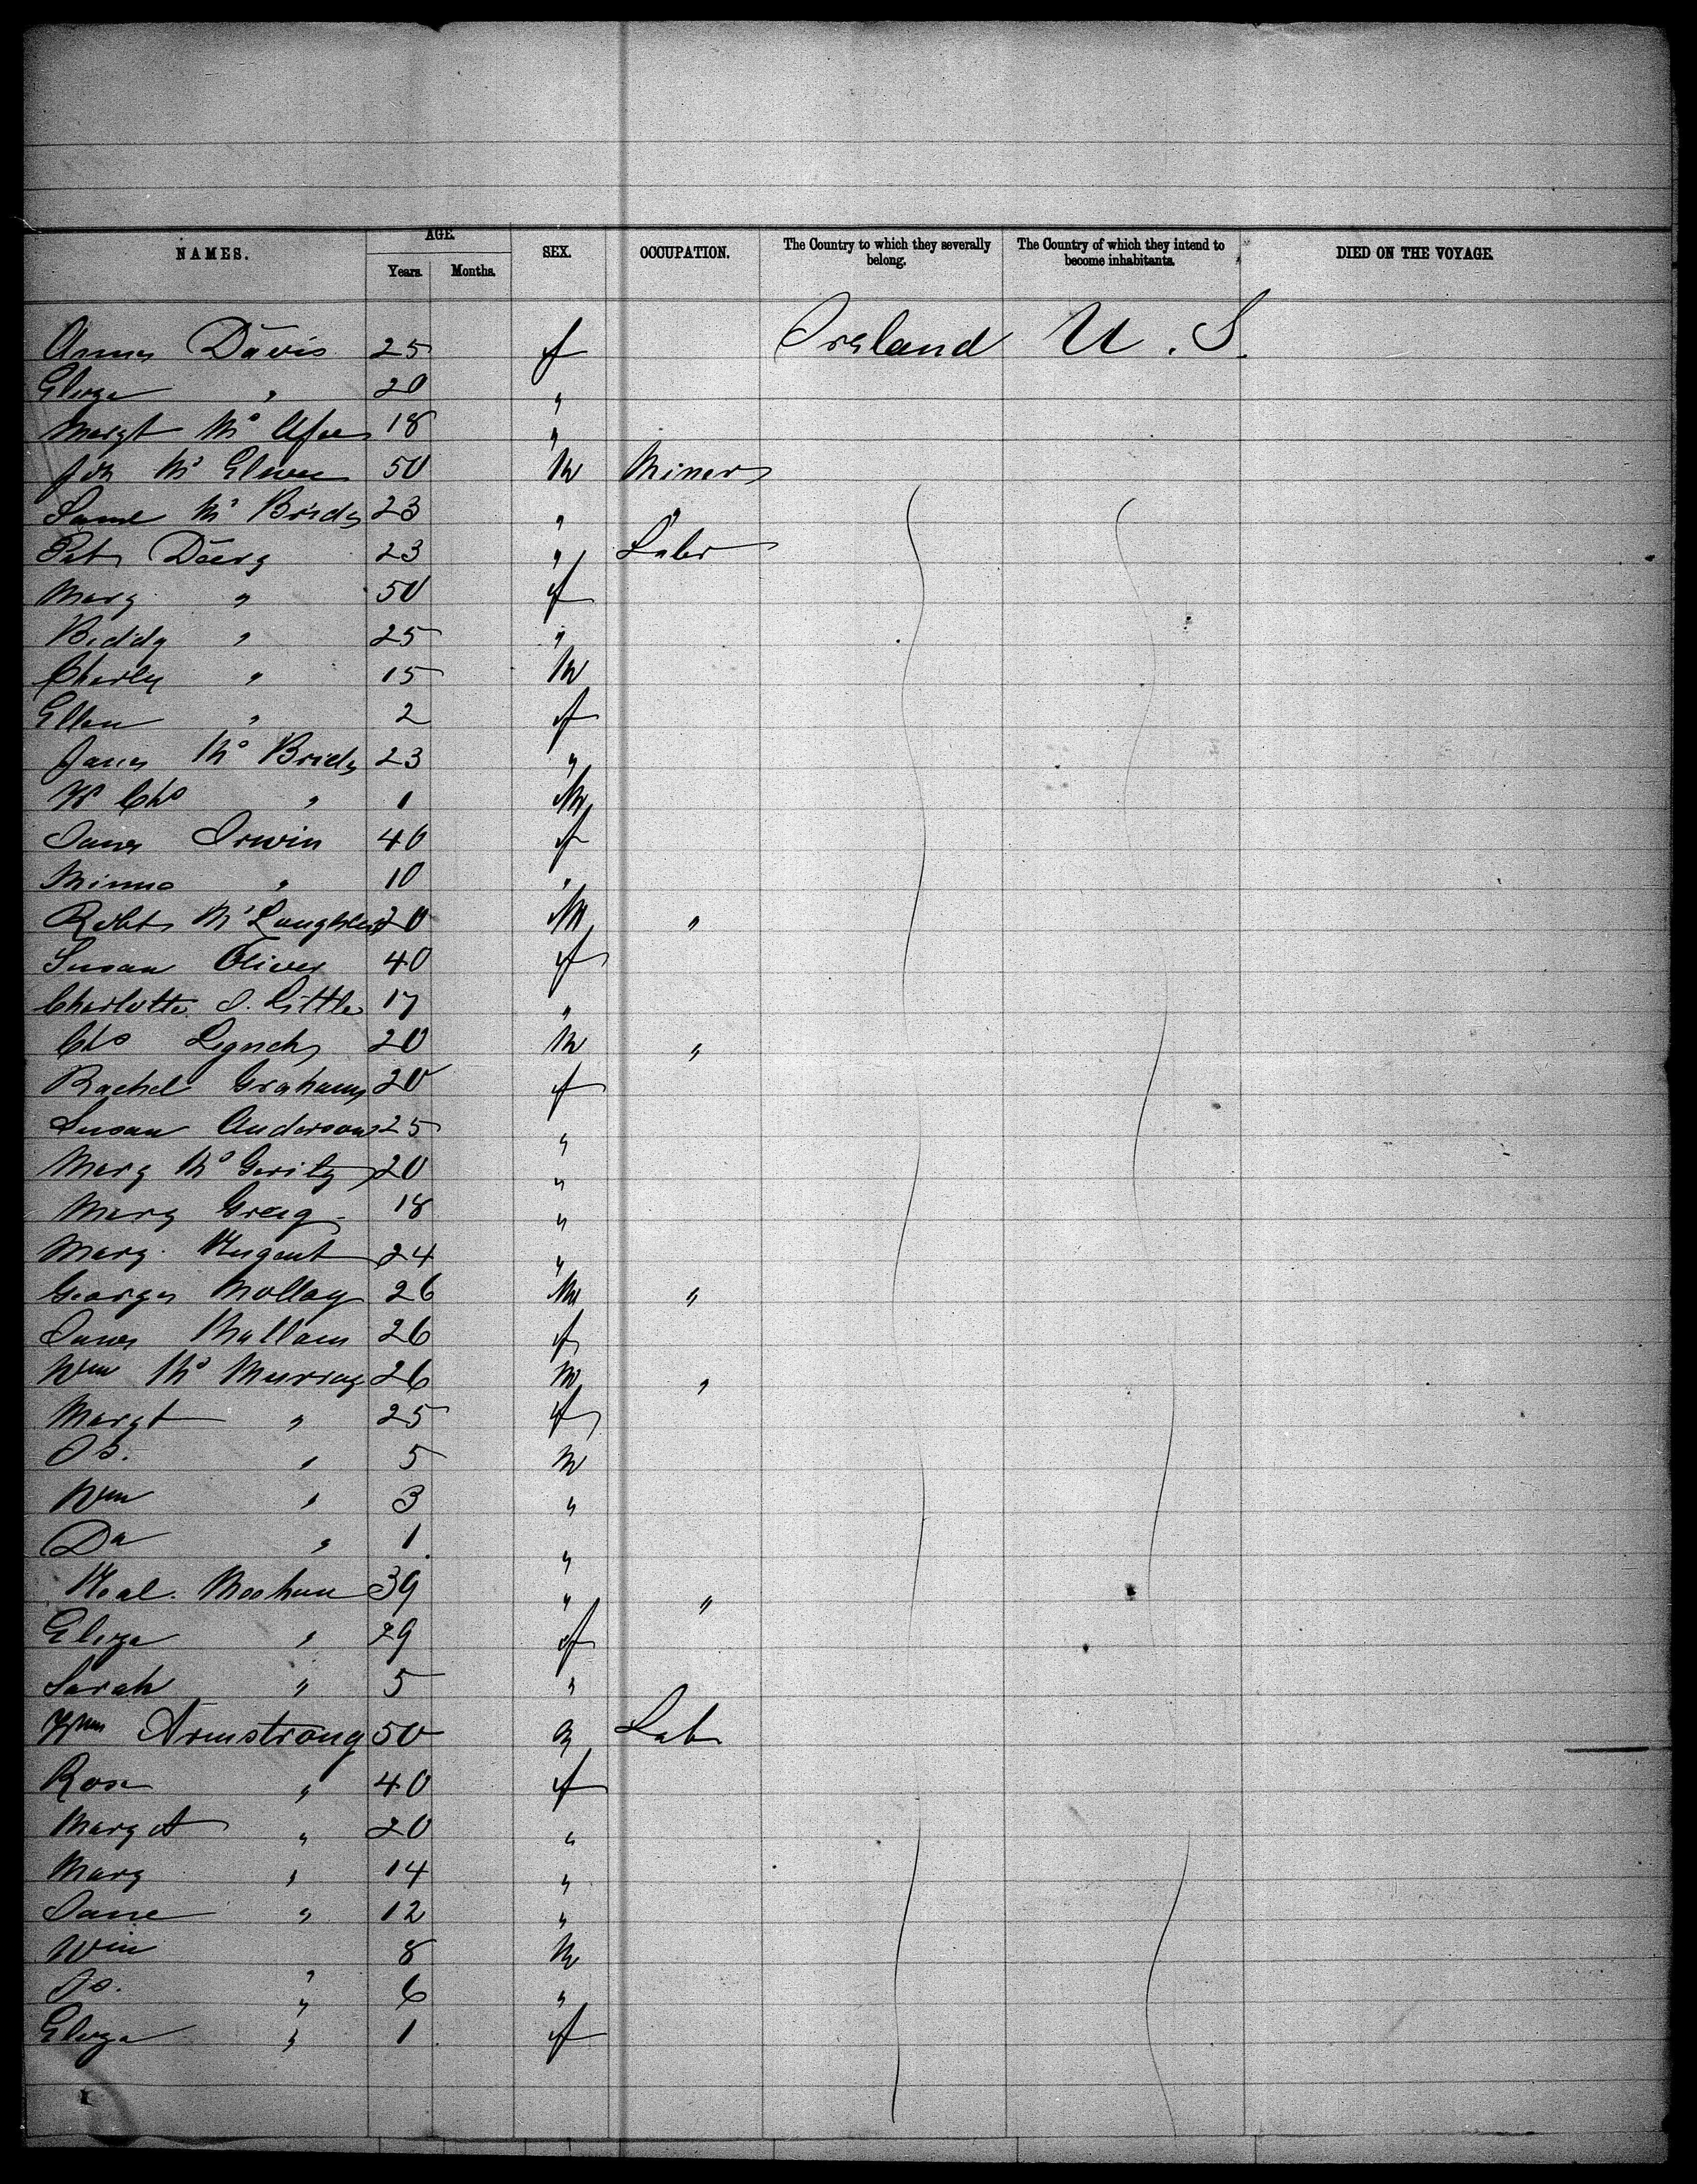 NAMES. AGE. Years. Months. SEX. OCCUPATION. The Country to which they severally belong. The Country of which they intend to become inhabitants. DIED ON THE VOYAGE.
Davis 25 f Ireland U.S.
Eliza " 20 "
Margt Mc Afee 18 "
50 M Miner
Saml Mc Bride 23 " "
Pat 23 " Labr
Mary " 50 f
Biddy " 25 "
Charly " 15 M
Ellen " 2 f
Jane Mc Bride 23 "
" 1 M
Jane Irwin 40 f
Minnie " 10 "
Robt Mc Laughlin 20 M "
Susan Oliver 40 f
Charlotte J. Little 17 "
Chs Lynch 20 M "
Rachel Graham 20 f
Susan Anderson 25 "
Mary Mc Gerity 20 "
Mary Greig 18 "
Mary Nugent 24 "
George Molloy 26 M "
Jane 26 f
Wm Mc Murray 26 M "
Margt " 25 f
" 5 M
Wm " 3 "
Da " 1 "
Neal Meehan 39 " "
Eliza " 29 f
Sarah " 5 "
Wm Armstrong 50 M Lab
Rose " 40 f
Margt " 20 "
Mary " 14 "
Jane " 12 "
Wm " 8 M
Jo. " 6 "
Eliza " 1 f